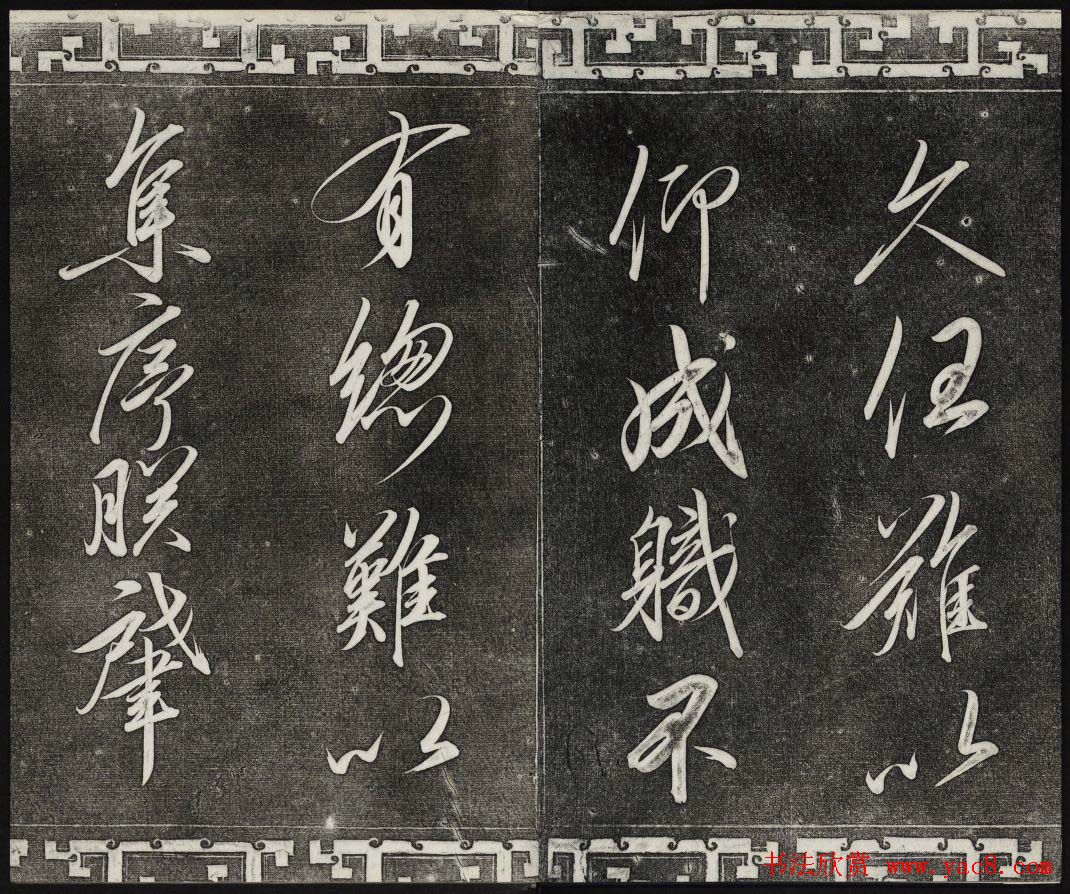 久任難以
仰成職不
有總難以
集序朕肇
书法欣赏 www.yac8.com